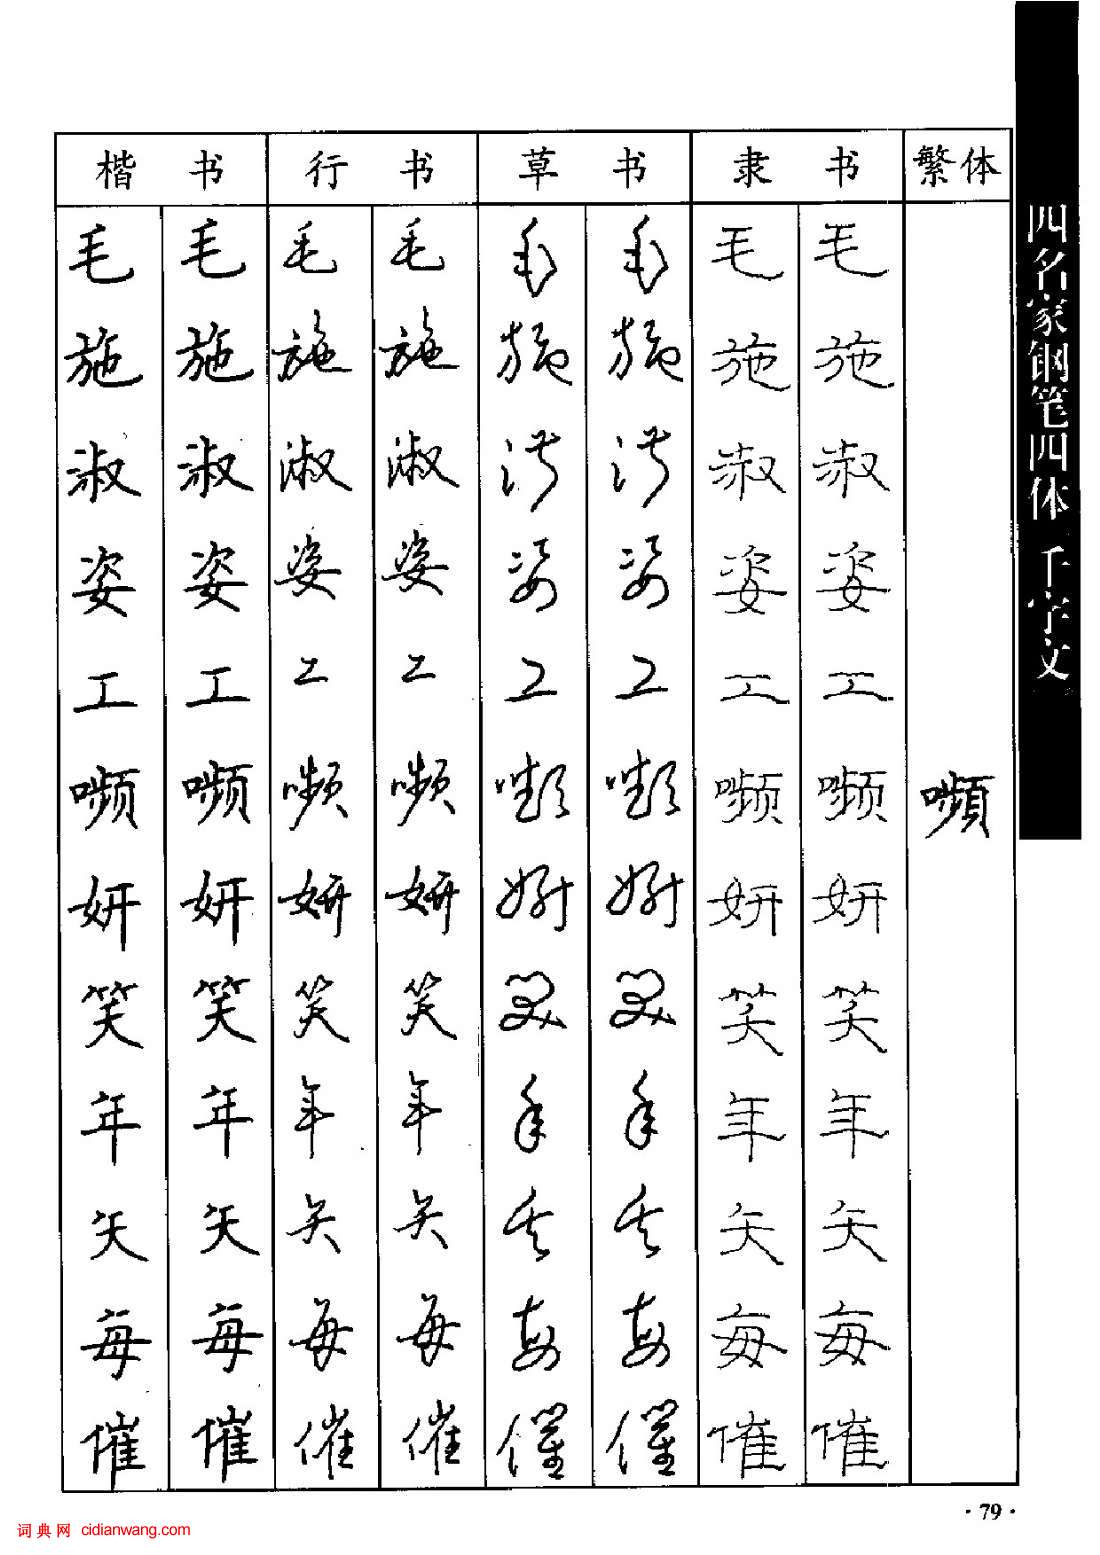 楷书 行书 草书 隶书 繁体
毛 毛 毛 毛 毛 毛 毛 毛
施 施 施 施 施 施 施 施
淑 淑 淑 淑 淑 淑 淑 淑
姿 姿 姿 姿 姿 姿 姿 姿
工 工 工 工 工 工 工 工
嚬 嚬 嚬 嚬 嚬 嚬 嚬 嚬 嚬
妍 妍 妍 妍 妍 妍 妍 妍
笑 笑 笑 笑 笑 笑 笑 笑
年 年 年 年 年 年 年 年
矢 矢 矢 矢 矢 矢 矢 矢
每 每 每 每 每 每 每 每
催 催 催 催 催 催 催 催
四名家钢笔四体 千字文
·79·
词典网 cidianwang.com